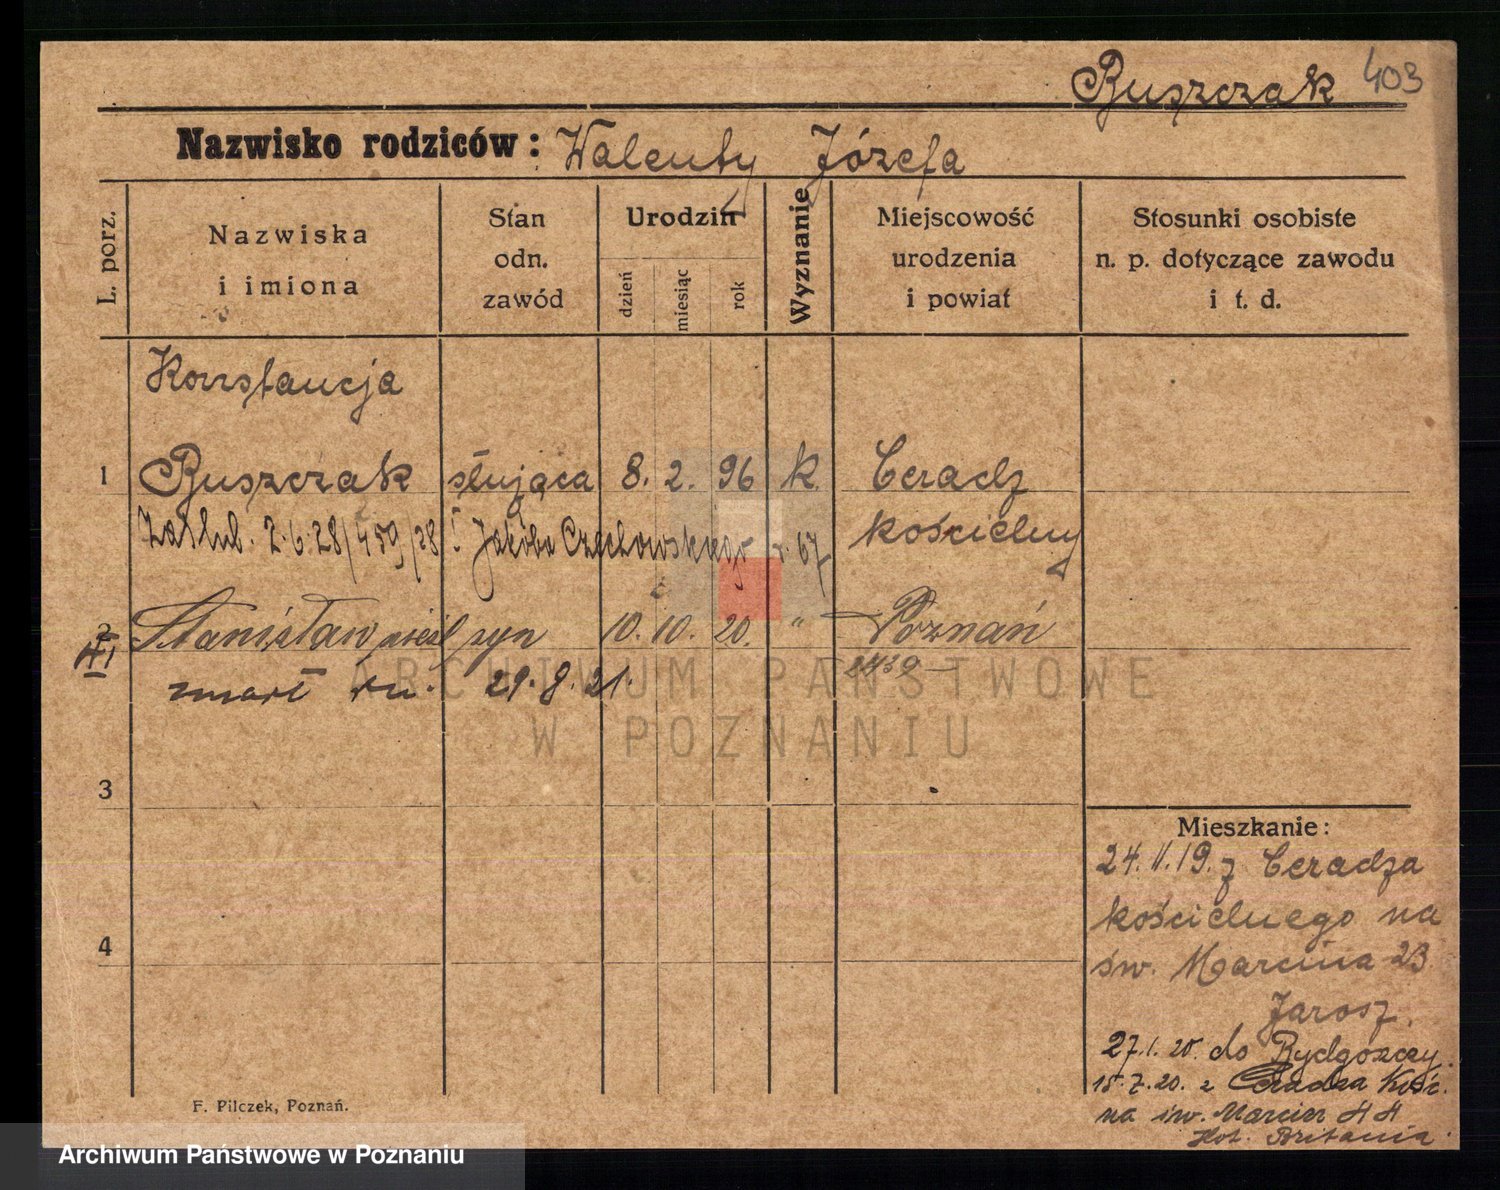 Buszczak 403
Nazwisko rodziców: Walenty Józefa
L. porz.
Nazwiska
i imiona
Stan
odn.
zawód
Urodzin
dzień
miesiąc
rok
Wyznanie
Miejscowość
urodzenia
i powiat
Stosunki osobiste
n. p. dotyczące zawodu
i t. d.
Konstancja
1 Buszczak służąca 8. 2. 96 k. Ceradz
kościelny
Zaślub. 2.6.28/459/28 Jakóba Czechowskiego r. 67
2 Stanisław nieśl syn 10. 10. 20. " Poznań
zmarł tu. 29. 8. 21.
ARCHIWUM PAŃSTWOWE
W POZNANIU
3
4
Mieszkanie:
24.11.19. z Ceradza
kościelnego na
św. Marcina 23
Jarosz.
27.1.20. do Bydgoszczy.
15.7.20. z Ceradza Kość.
na św. Marcin 44
Hot. Britania.
F. Pilczek, Poznań.
Archiwum Państwowe w Poznaniu